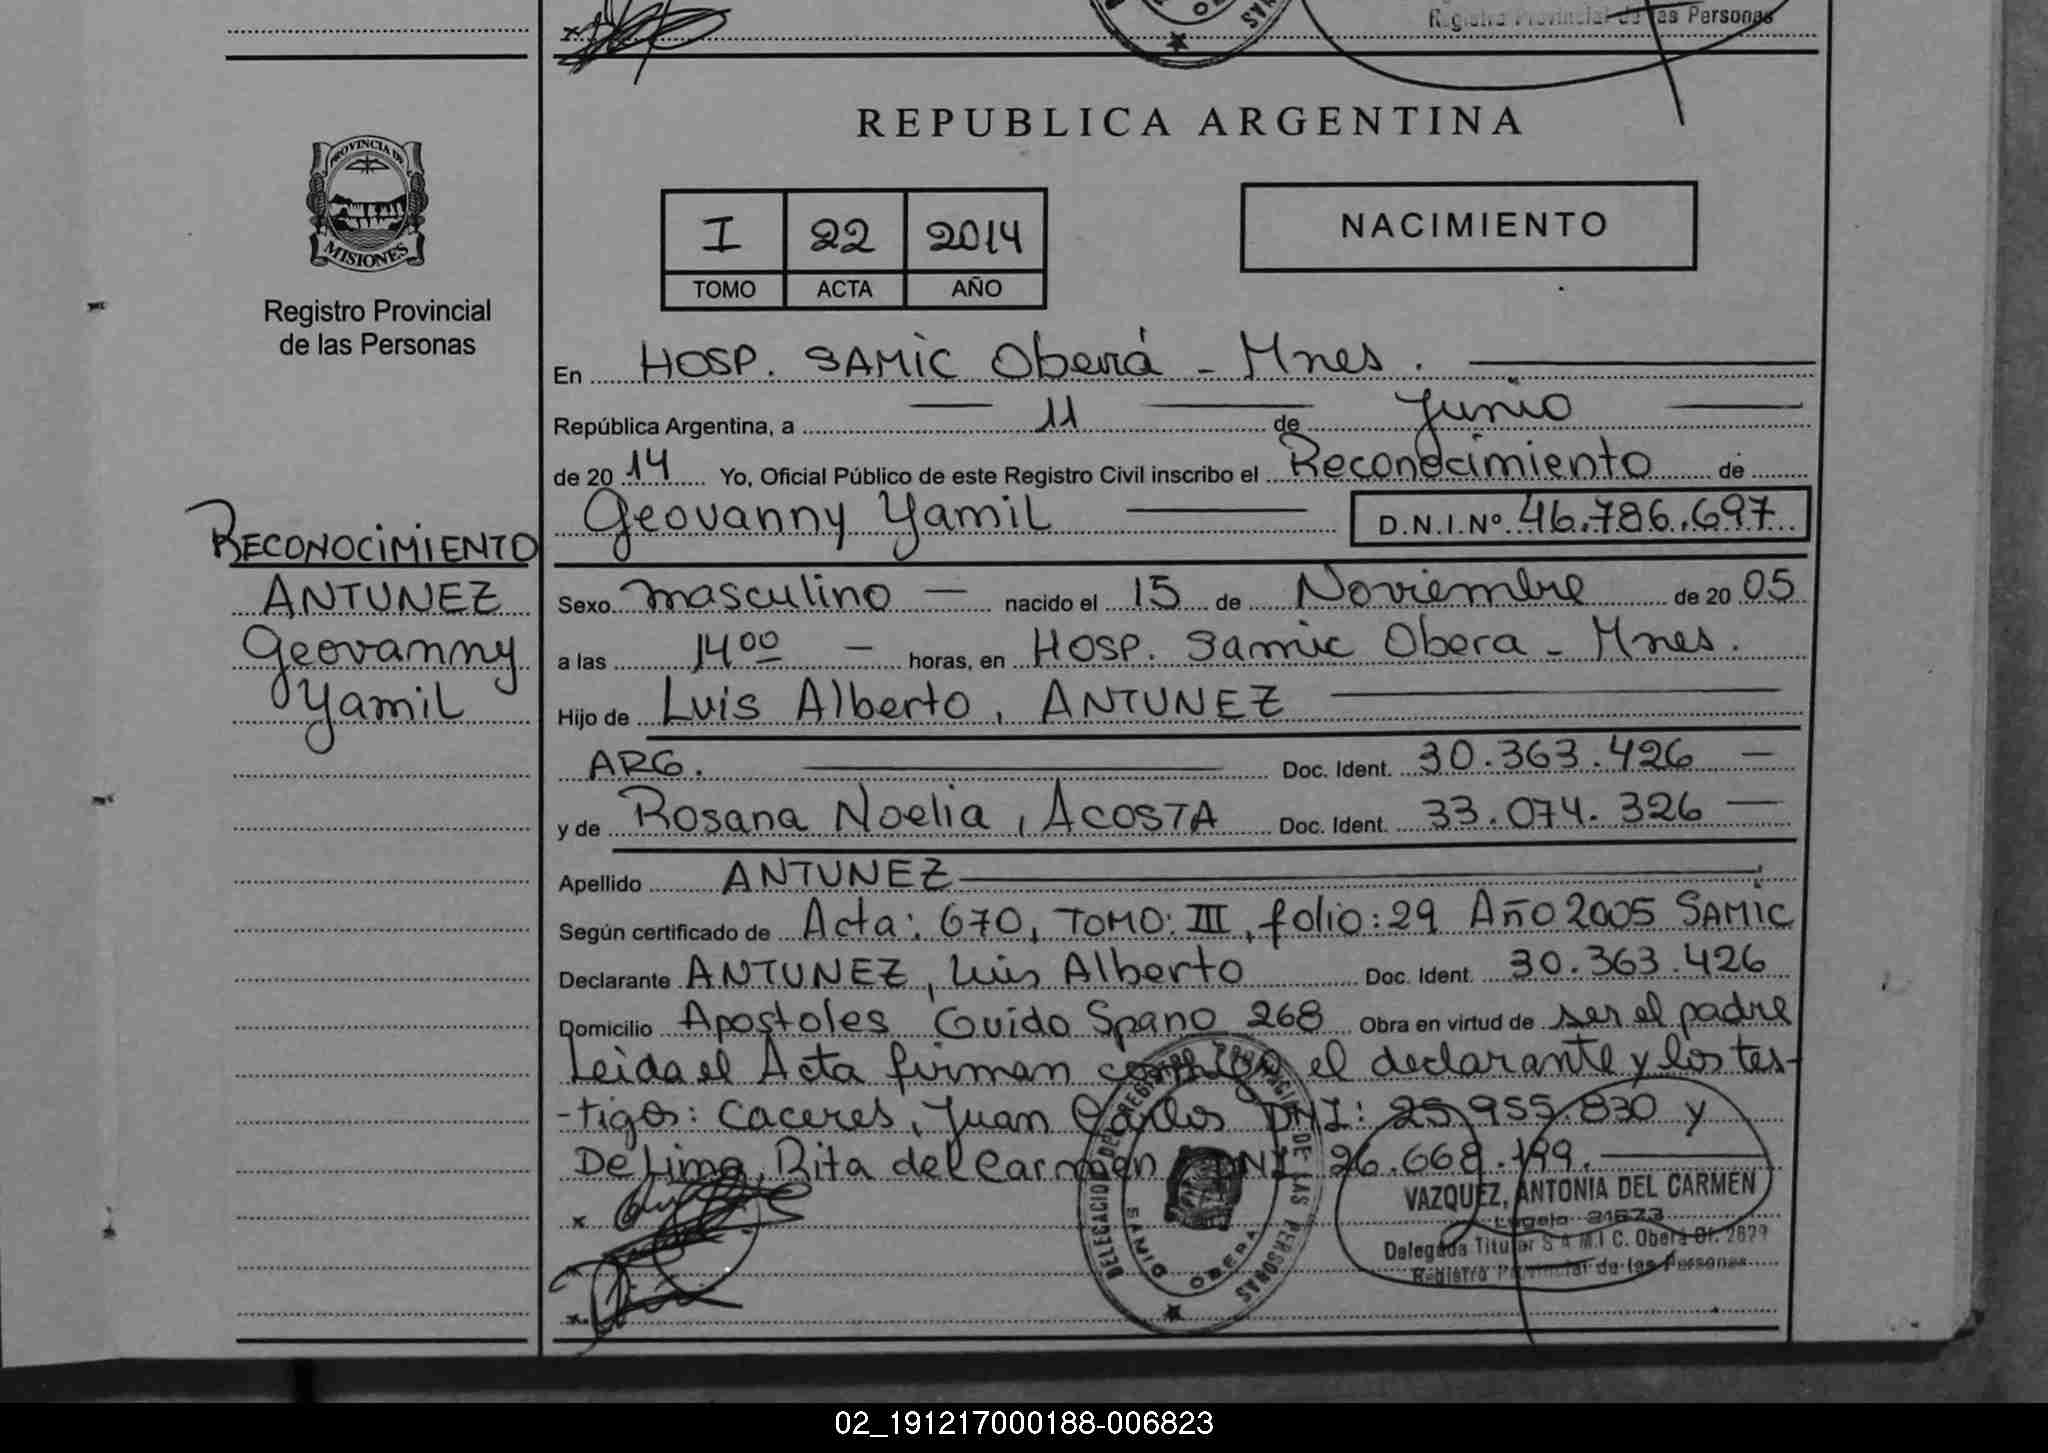 Registro Provincial de las Personas
REPUBLICA ARGENTINA
PROVINCIA DE
MISIONES
Registro Provincial
de las Personas
I 22 2014
TOMO ACTA AÑO
NACIMIENTO
En HOSP. SAMIC Oberá - Mnes.
República Argentina, a 11 de Junio
de 20 14 Yo, Oficial Público de este Registro Civil inscribo el Reconocimiento de
Geovanny Yamil D.N.I.Nº 46.786.697
RECONOCIMIENTO
ANTUNEZ
Geovanny
Yamil
Sexo masculino — nacido el 15 de Noviembre de 20 05
a las 14 00 — horas, en Hosp. Samic Obera - Mnes.
Hijo de Luis Alberto, ANTUNEZ
ARG. Doc. Ident. 30.363.426 —
y de Rosana Noelia, ACOSTA Doc. Ident. 33.074.326 —
Apellido ANTUNEZ
Según certificado de Acta: 670, TOMO: III, folio: 29 Año 2005 SAMIC
Declarante ANTUNEZ, Luis Alberto Doc. Ident. 30.363.426
Domicilio Apostoles Guido Spano 268 Obra en virtud de ser el padre
Leida el Acta firman conmigo el declarante y los tes-
-tigos: Caceres, Juan Carlos DNI: 25.955.830 y
De Lima, Rita del Carmen DNI 26.668.199.
VAZQUEZ, ANTONIA DEL CARMEN
Legajo 21673
Delegada Titular S.A.M.I.C. Oberá Of. 2629
Registro Provincial de las Personas
DELEGACION DEL REGISTRO PROVINCIAL DE LAS PERSONAS
OBERA
02_191217000188-006823